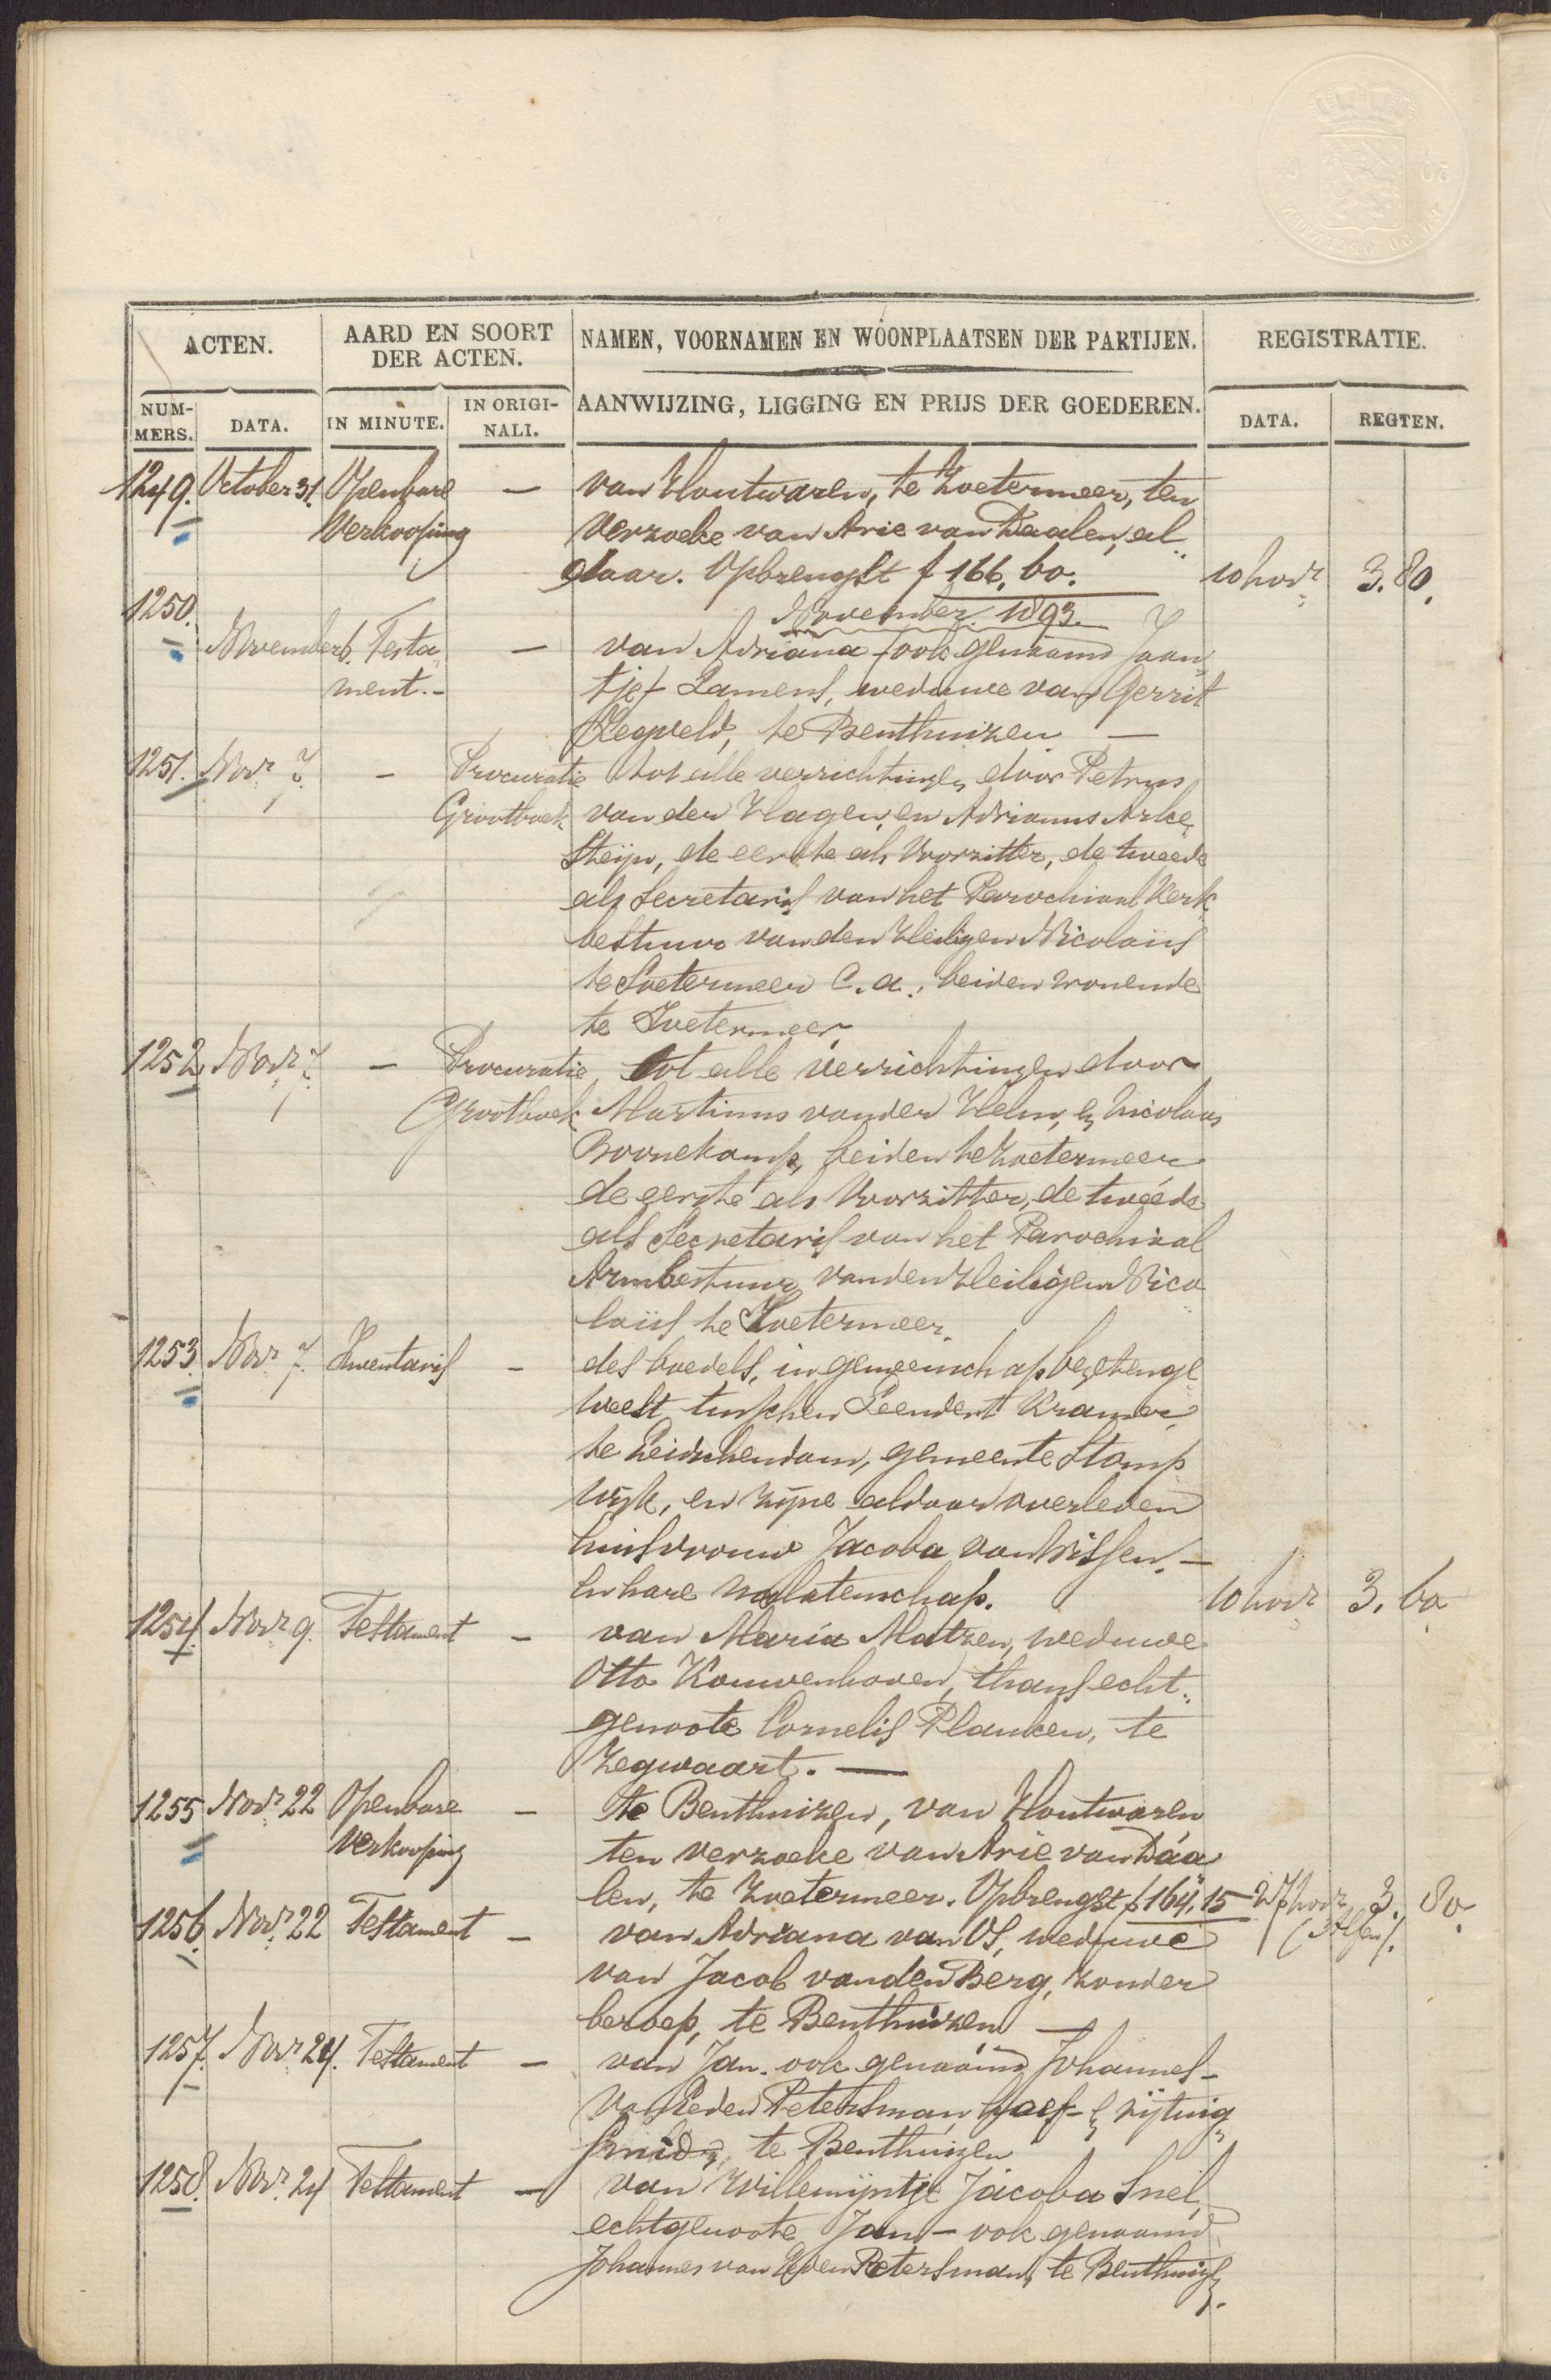 ACTEN.
AARD EN SOORT
DER ACTEN.
NAMEN, VOORNAMEN EN WOONPLAATSEN DER PARTIJEN.
REGISTRATIE.
NUM-
MERS.
DATA.
IN MINUTE.
IN ORIGI-
NALI.
AANWIJZING, LIGGING EN PRIJS DER GOEDEREN.
DATA.
REGTEN.
1249. October 31. Openbare — van Houtwaren, te Zoetermeer, ten
Verkooping verzoeke van Arie van Daalen, al„
daar. Opbrengst f 166,60. 10 Novr 3.80.
November 1893.
1250. November 6. Testa„ — van Adriana (ook genaamd Jaan„
ment.- tje) Lamens, weduwe van Gerrit
Kegveld, te Benthuizen —
1251. Novr 7. — Procuratie tot alle verrichtingen door Petrus
Grootboek van der Hagen, en Adrianus Arke„
steijn, de eerste als Voorzitter, de tweede
als Secretaris van het Parochiaal Kerk„
bestuur van den Heiligen Nicolaüs
te Soetermeer C.a., beiden wonende
te Zoetermeer,
1252 Novr 7. — Procuratie tot alle verrichtingen door
Grootboek Martinus van der Helm, en Nicolaas
Boonekamp, beiden te Zoetermeer
de eerste als Voorzitter, de tweede
als Secretaris van het Parochiaal
Armbestuur van den Heiligen Nico„
laüs te Zoetermeer.
1253 Novr 7. Inventaris — des boedels, in gemeenschap bezeten ge„
weest tusschen Leendert Kramer,
te Leidschendam, gemeente Stomp„
wijk, en zijne aldaar overleden
huisvrouw Jacoba van Rissen. —
en hare nalatenschap. 10 Novr 3.60
1254. Novr 9. Testament — van Maria Matzen, weduwe
Otto Kouwenhoven, thans echt„
genoote Cornelis Planken, te
Zegwaart. —
1255 Novr 22 Openbare — te Benthuizen, van Houtwaren
Verkooping ten verzoeke van Arie van Daa„
len, te Zoetermeer. Opbrengst f 164,15 Novr 3.80
(Alfen).
1256. Novr 22 Testament — van Adriana van Os, weduwe
van Jacob van den Berg, zonder
beroep, te Benthuizen —
1257. Novr 24. Testament — van Jan- ook genaamd Johannes-
van Leden Petersman, hoef- en rijtuig„
smid, te Benthuizen
1258. Novr 24 Testament — van Willemijntje Jacoba Snel,
echtgenoote Jan- ook genaamd
Johannes van Leden Petersman, te Benthuizen.